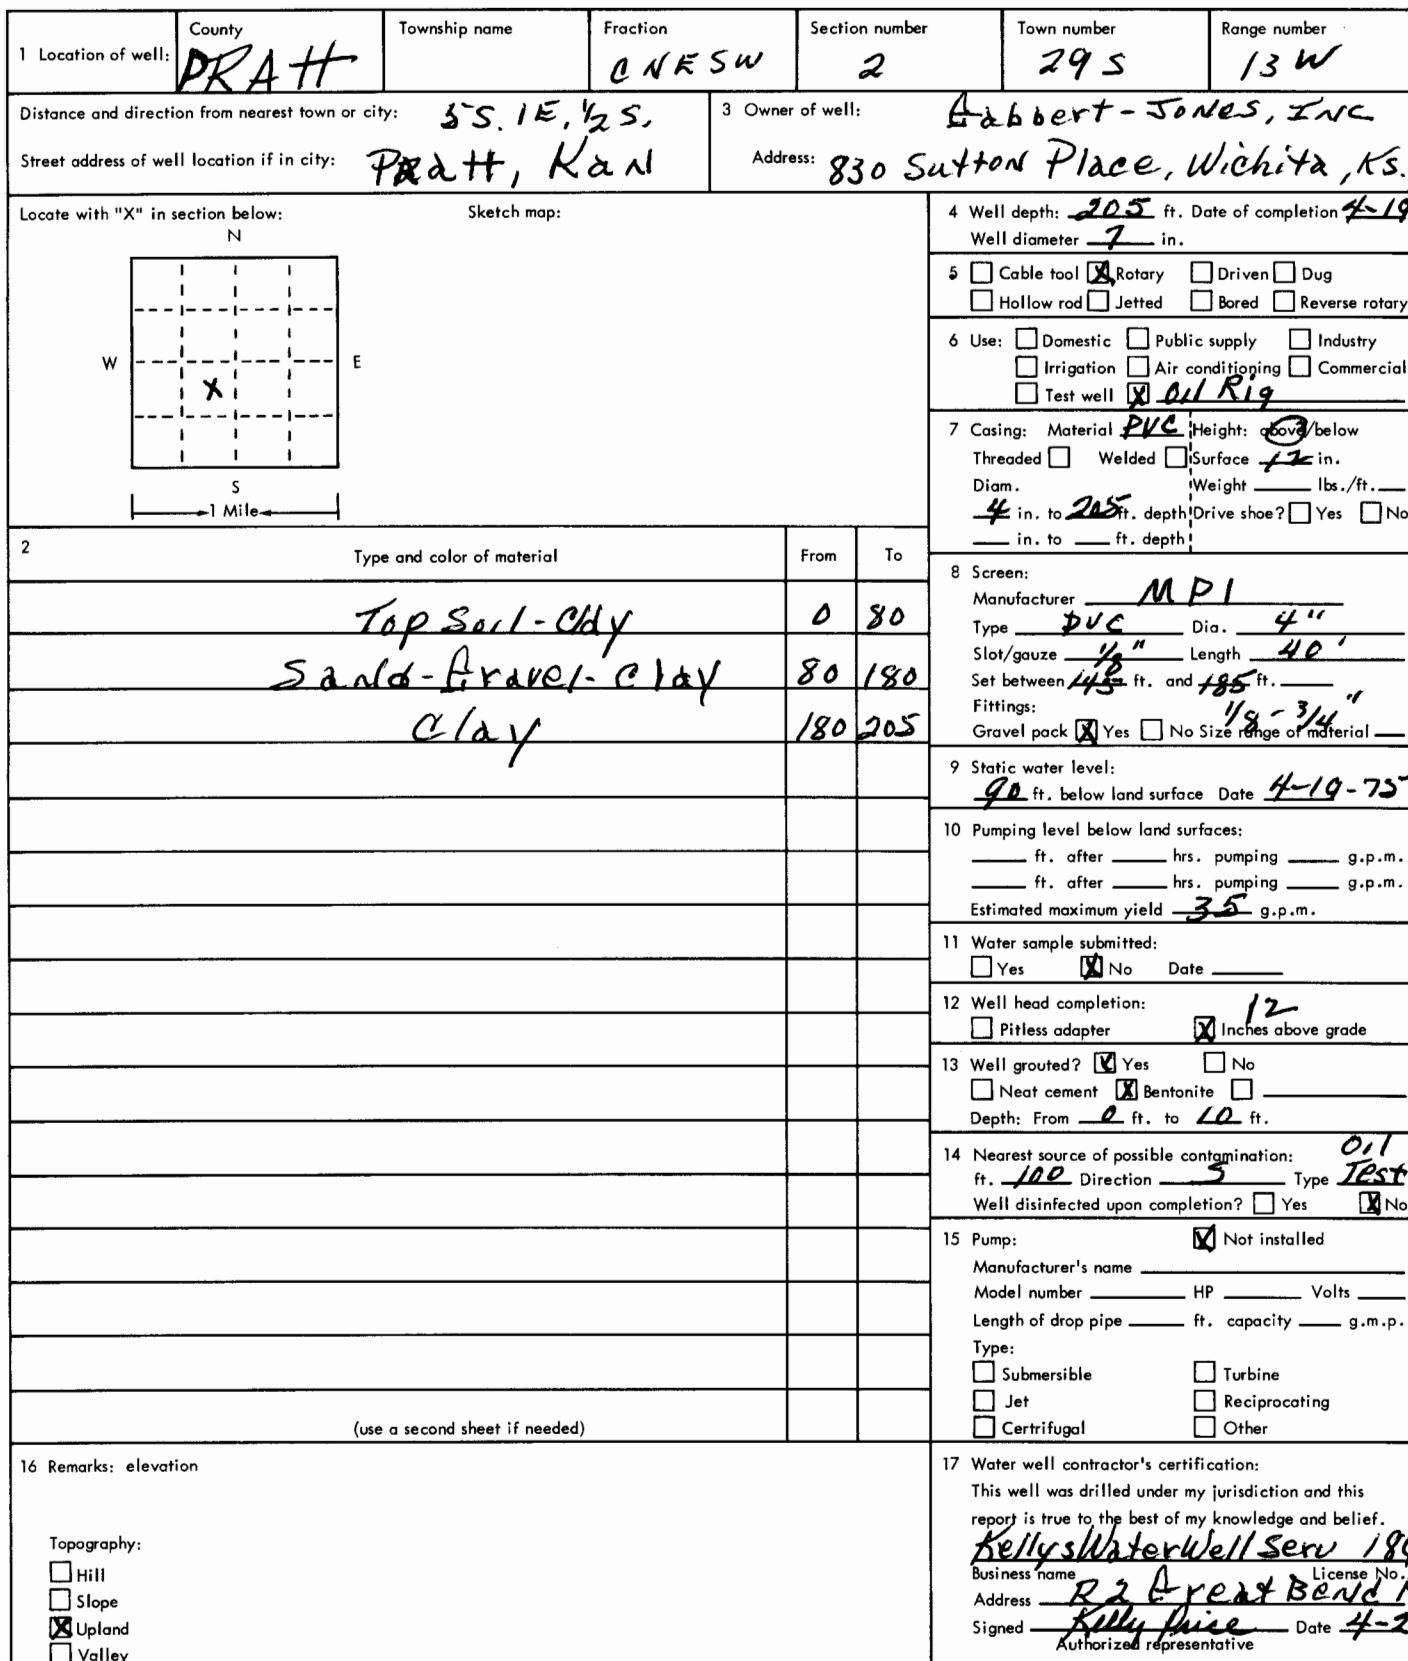 1 Location of well: County PRATT Township name Fraction C NE SW Section number 2 Town number 29 S Range number 13 W
Distance and direction from nearest town or city: 5S. 1E, 1/2 S,
Street address of well location if in city: Pratt, Kan
3 Owner of well: Gabbert-Jones, Inc
Address: 830 Sutton Place, Wichita, Ks.
Locate with "X" in section below: Sketch map:
N
W X E
S
1 Mile
2 Type and color of material From To
Top Soil-Clay 0 80
Sand-Gravel-Clay 80 180
Clay 180 205
(use a second sheet if needed)
4 Well depth: 205 ft. Date of completion 4-19
Well diameter 7 in.
5 Cable tool X Rotary Driven Dug
Hollow rod Jetted Bored Reverse rotary
6 Use: Domestic Public supply Industry
Irrigation Air conditioning Commercial
Test well X Oil Rig
7 Casing: Material PVC Height: above/below
Threaded Welded Surface 12 in.
Diam. Weight lbs./ft.
4 in. to 205 ft. depth Drive shoe? Yes No
in. to ft. depth
8 Screen:
Manufacturer MPI
Type PVC Dia. 4"
Slot/gauze 1/8" Length 40'
Set between 145 ft. and 185 ft.
Fittings: 1/8 - 3/4"
Gravel pack X Yes No Size range of material
9 Static water level:
90 ft. below land surface Date 4-19-75
10 Pumping level below land surfaces:
ft. after hrs. pumping g.p.m.
ft. after hrs. pumping g.p.m.
Estimated maximum yield 35 g.p.m.
11 Water sample submitted:
Yes X No Date
12 Well head completion: 12
Pitless adapter X Inches above grade
13 Well grouted? X Yes No
Neat cement X Bentonite
Depth: From 0 ft. to 10 ft.
14 Nearest source of possible contamination: Oil
ft. 100 Direction S Type Test
Well disinfected upon completion? Yes X No
15 Pump: X Not installed
Manufacturer's name
Model number HP Volts
Length of drop pipe ft. capacity g.m.p.
Type:
Submersible Turbine
Jet Reciprocating
Certrifugal Other
16 Remarks: elevation
Topography:
Hill
Slope
X Upland
Valley
17 Water well contractor's certification:
This well was drilled under my jurisdiction and this
report is true to the best of my knowledge and belief.
Kellys Water Well Serv 18
Business name License No.
Address R2 Great Bend
Signed Kelly Price Date 4-2
Authorized representative